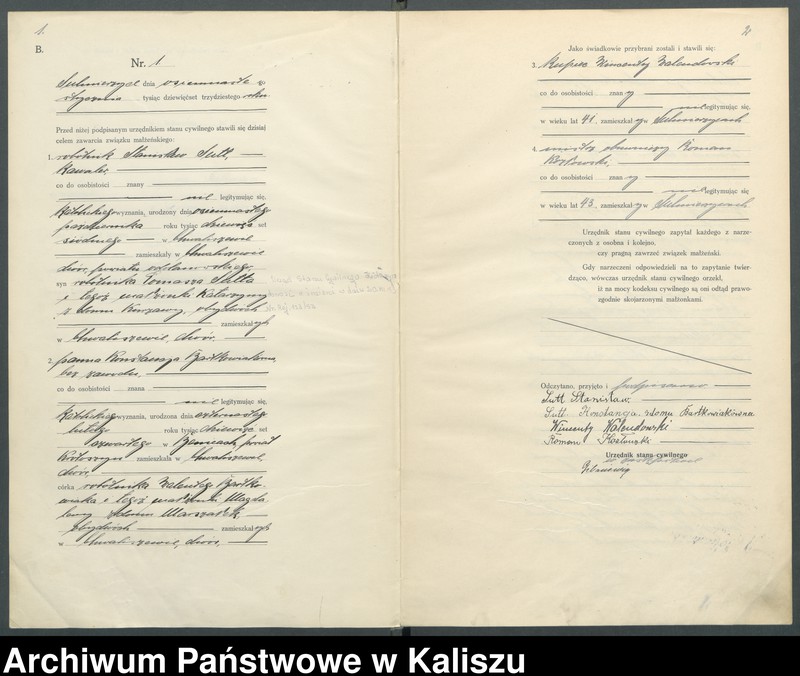 1.
B.
Nr. 1
Sulmierzyce dnia osiemnaste
stycznia tysiąc dziewięćset trzydziestego roku
Przed niżej podpisanym urzędnikiem stanu cywilnego stawili się dzisiaj
celem zawarcia związku małżeńskiego:
1. robotnik Stanisław Sutt,
kawaler,
co do osobistości znany
legitymując się,
katolickiego wyznania, urodzony dnia osiemnastego
października roku tysiąc dziewięć set
siódmego w Chwaliszewie
zamieszkały w Chwaliszewie
dwór, powiatu
syn robotnika Tomasza Sutta
i tegoż małżonki Katarzyny
z domu obydwóch
zamieszkałych
w Chwaliszewie, dwór.
2. panna Konstancja Bartkowiakówna
bez zawodu,
co do osobistości znana
legitymując się,
katolickiego wyznania, urodzona dnia
lutego roku tysiąc dziewięć set
czwartego w powiat
Krotoszyn zamieszkała w Chwaliszewie,
dwór,
córka robotnika Walentego Bartko-
wiaka i tegoż małżonki Magda-
leny z domu Marszałek
obydwóch zamieszkałych
w Chwaliszewie, dwór,
2
Jako świadkowie przybrani zostali i stawili się:
3. kupiec Wincenty Walendowski
co do osobistości znany
legitymując się,
w wieku lat 41, zamieszkały w Sulmierzycach
4. mistrz Roman
Kozłowski,
co do osobistości znany
legitymując się
w wieku lat 43, zamieszkały w Sulmierzycach
Urzędnik stanu cywilnego zapytał każdego z narze-
czonych z osobna i kolejno,
czy pragną zawrzeć związek małżeński.
Gdy narzeczeni odpowiedzieli na to zapytanie twier-
dząco, wówczas urzędnik stanu cywilnego orzekł,
iż na mocy kodeksu cywilnego są oni odtąd prawo-
zgodnie skojarzonymi małżonkami.
Odczytano, przyjęto i podpisano
Sutt Stanisław.
Sutt Konstancja z domu Bartkowiakówna
Wincenty Walendowski
Roman Kozłowski
Urzędnik stanu cywilnego
w zastępstwie
Archiwum Państwowe w Kaliszu